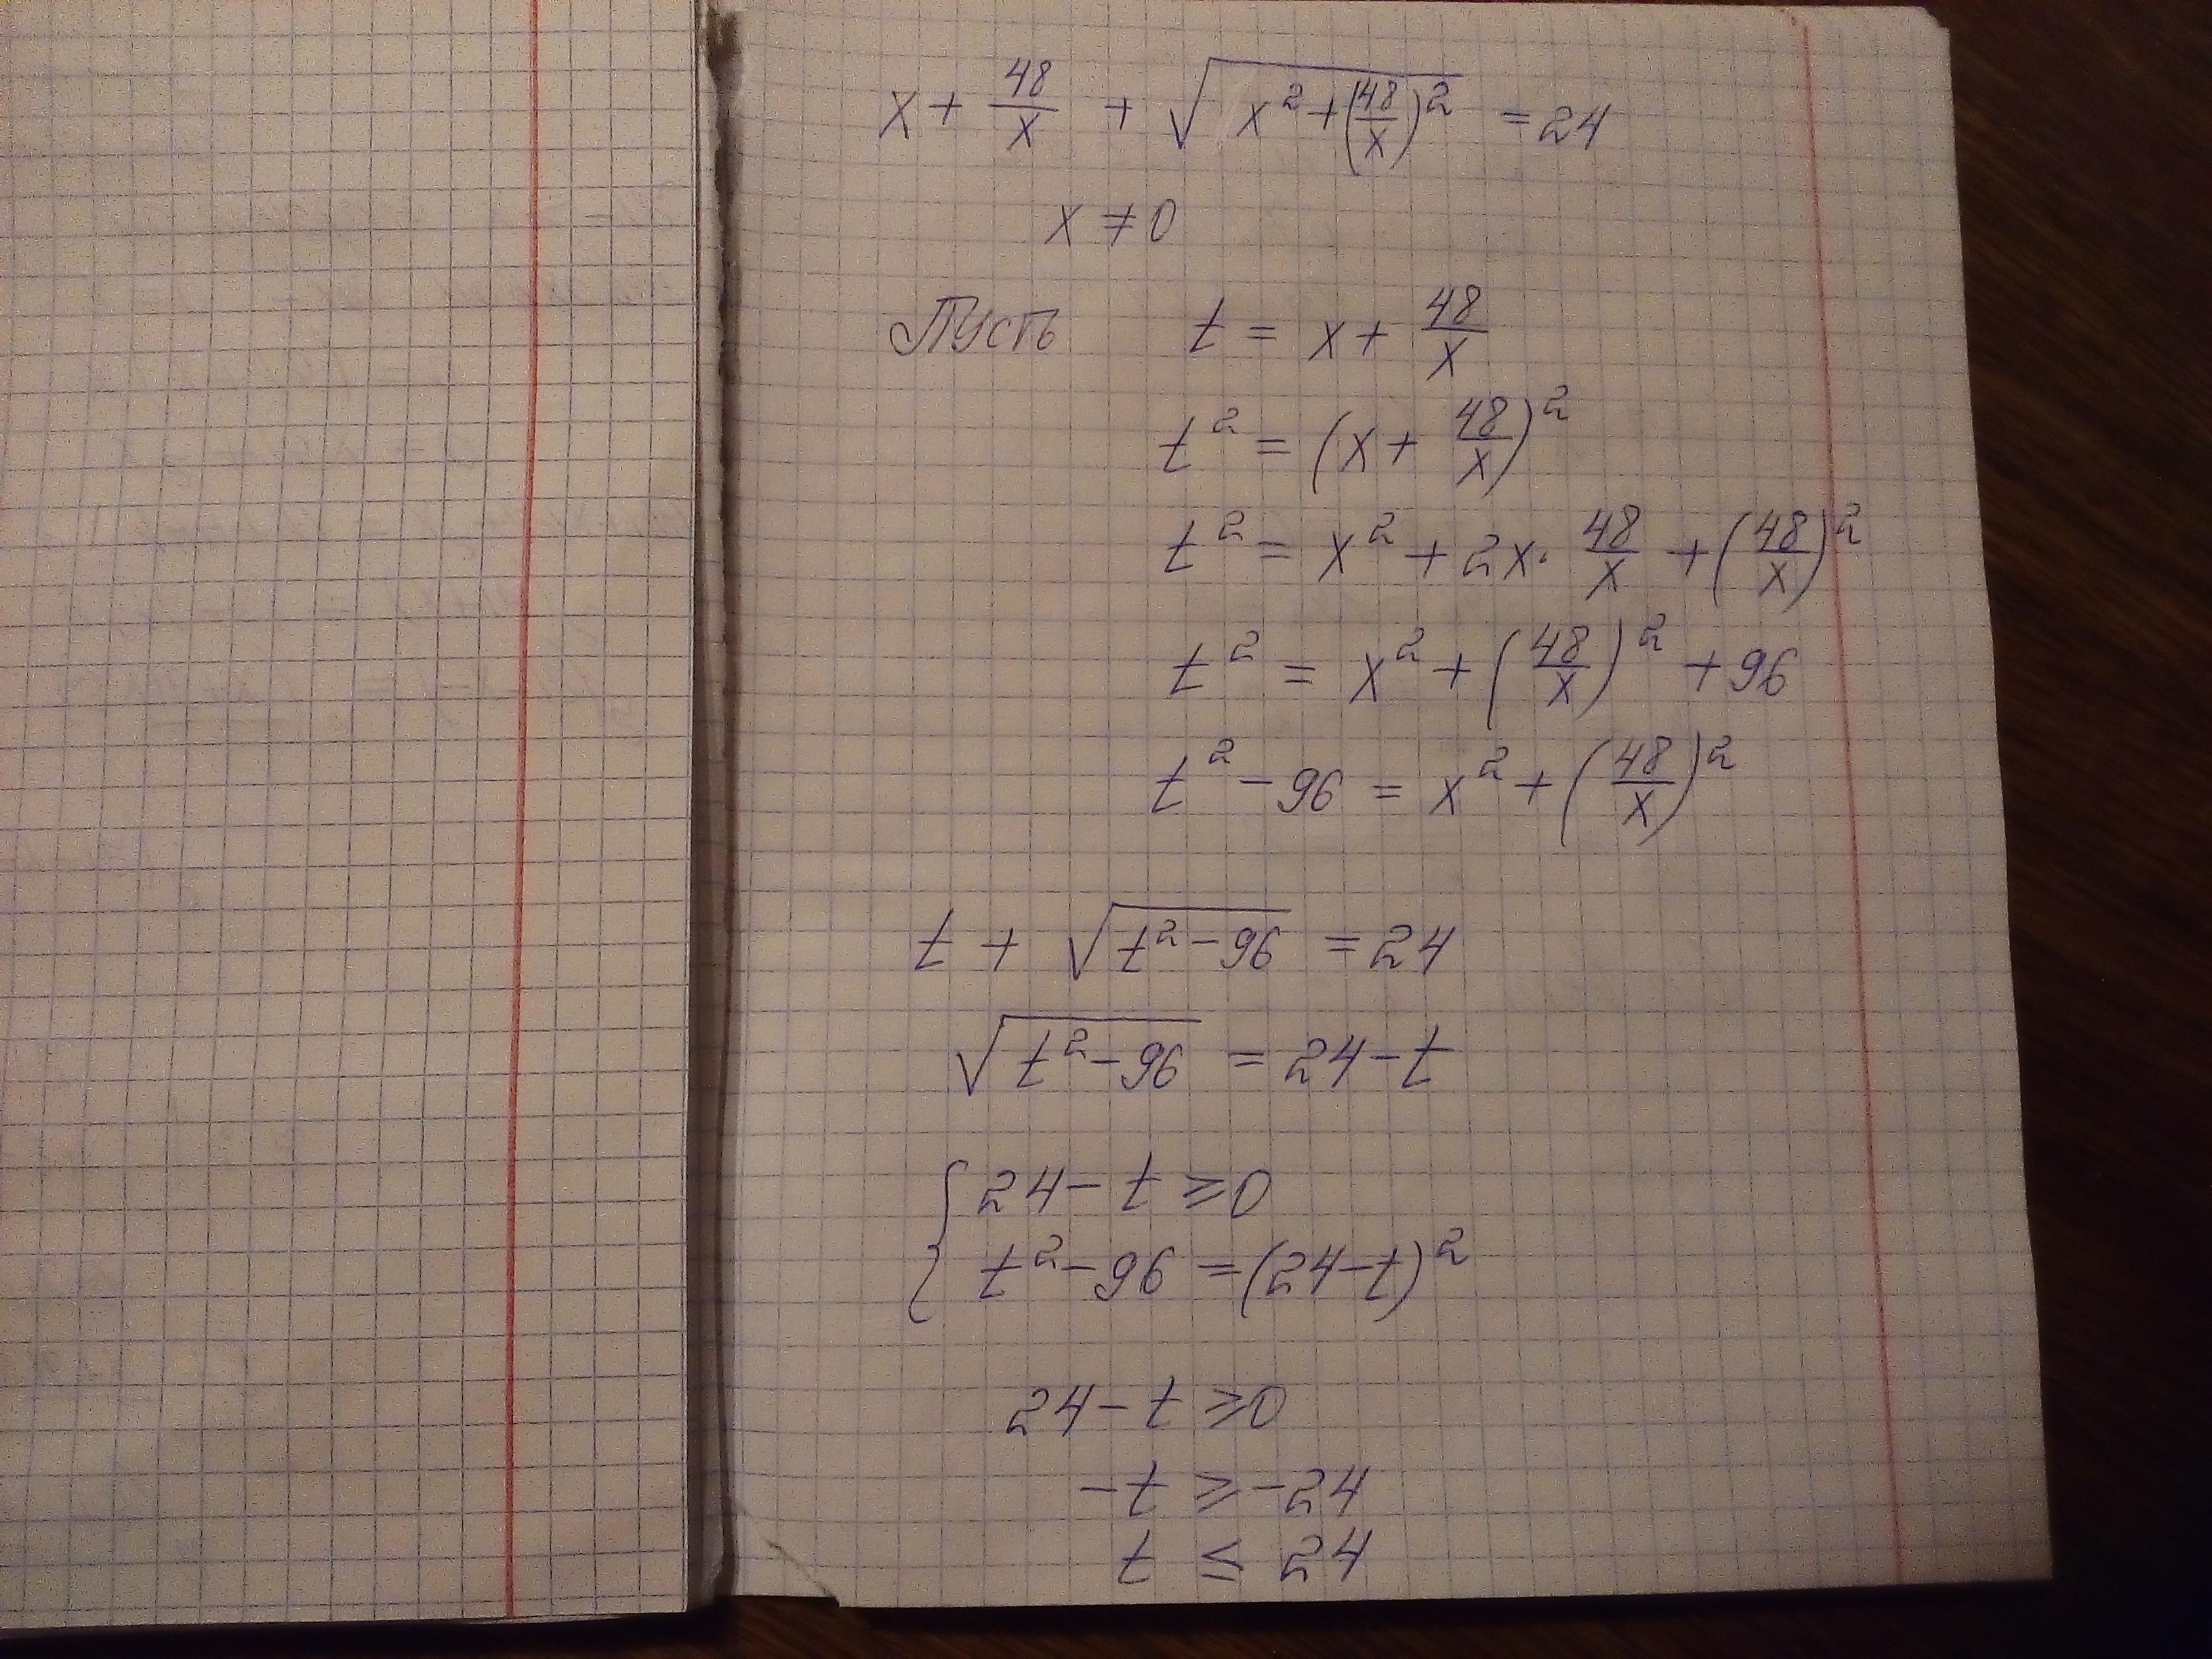 x + 48/x + √(x² + (48/x)²) = 24
x ≠ 0
Пусть t = x + 48/x
t² = (x + 48/x)²
t² = x² + 2x · 48/x + (48/x)²
t² = x² + (48/x)² + 96
t² - 96 = x² + (48/x)²
t + √(t² - 96) = 24
√(t² - 96) = 24 - t
{ 24 - t ≥ 0
t² - 96 = (24 - t)²
24 - t ≥ 0
-t ≥ -24
t ≤ 24